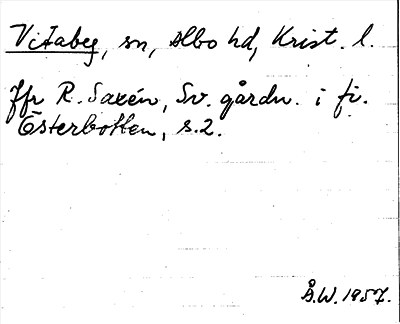 Vitabeg, sn, Albo hd, Krist. l.
Jfr R. Saxén, Sv. gårdn. i fi.
Österbotten, s.2.
Å.W. 1957.